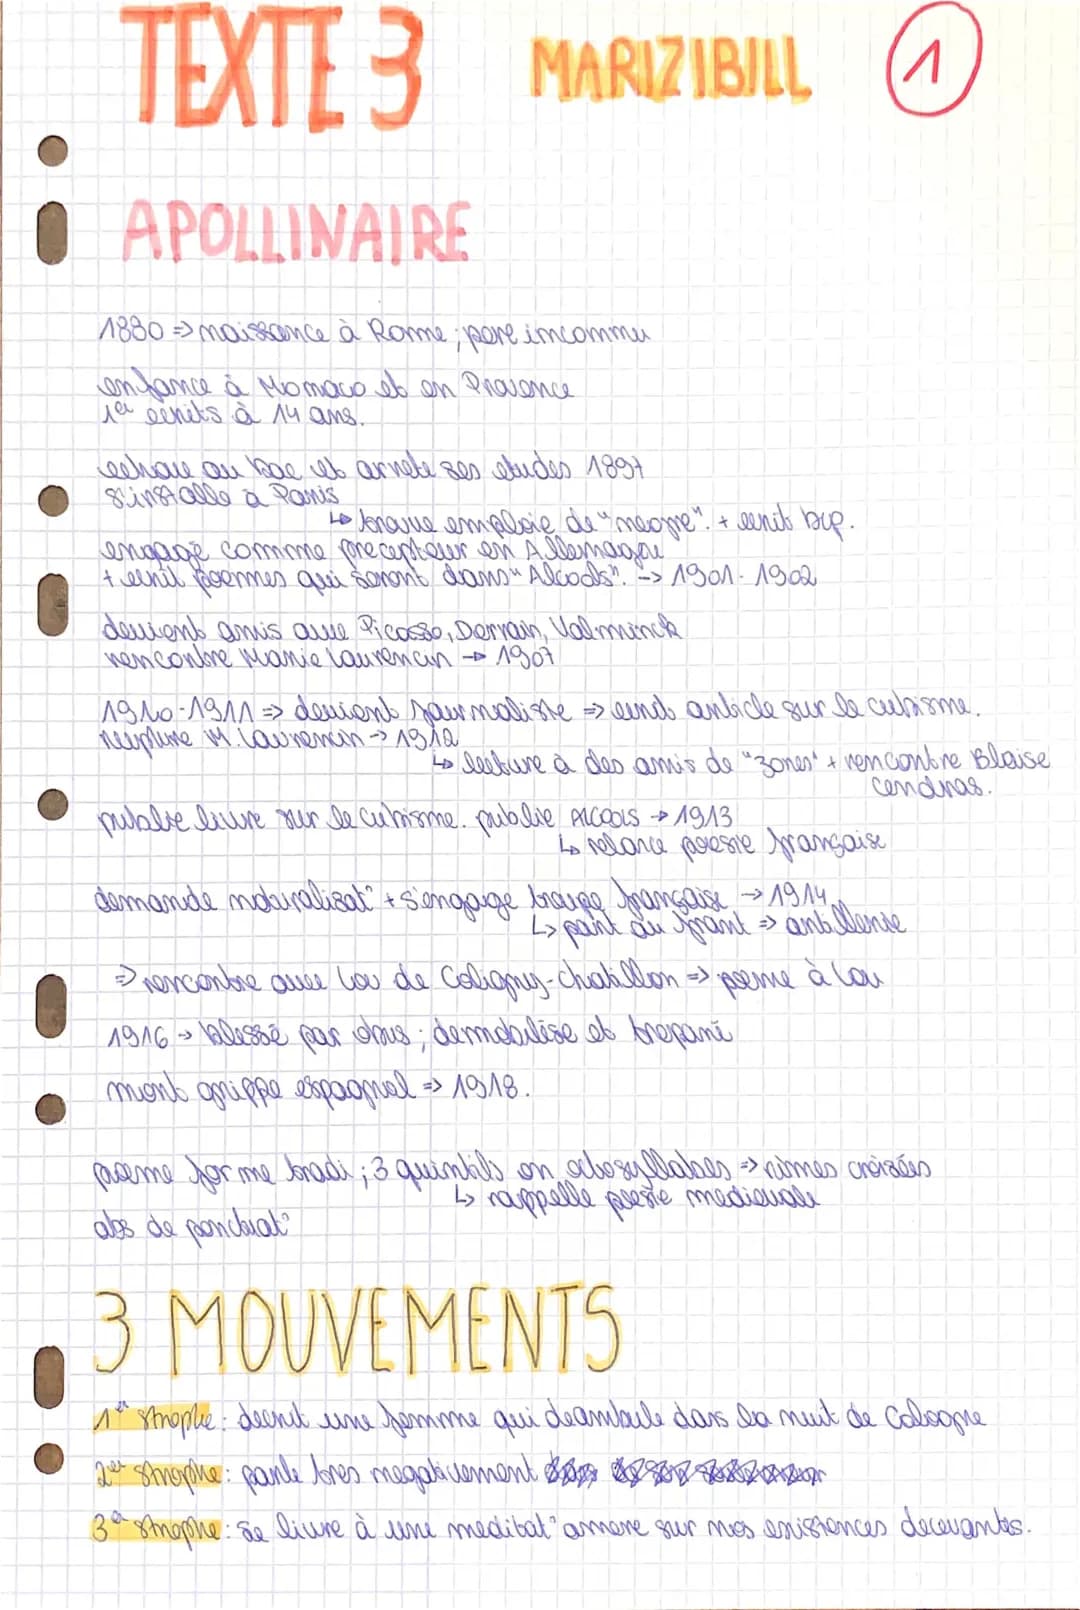 TEXTE 3 MARIZIBILL 1
APOLLINAIRE
1880 => naissance à Rome ; pere inconnu
enfance à Monaco et en Provence
1er ecrits à 14 ans.
echoue au bac et arrete ses etudes 1897
s'installe à Paris
↳ trouve emploie de "negre". + ecrit bcp.
engagé comme precepteur en Allemagne
+ ecrit poemes qui seront dans "Alcools". -> 1901-1902
devient amis avec Picasso, Derrain, Valminck
rencontre Marie Laurencin -> 1907
1910-1911 => devient journaliste => ecrit article sur le cubisme.
rupture M. Laurencin -> 1912
↳ lecture à des amis de "zones" + rencontre Blaise
Cendras.
publie livre sur le cubisme. publie ALCOOLS -> 1913
↳ relance poesie française
demande naturalisat° + s'engage troupe française -> 1914
↳ part au front => artillerie
=> rencontre avec Lou de Coligny-chatillon => poeme à Lou
1916 -> blessé par obus ; demobilisé et trepané
mort grippe espagnol => 1918.
poeme forme tradi ; 3 quintils en octosyllabes => rimes croisées
↳ rappelle poesie medievale
abs de ponctuat°
3 MOUVEMENTS
1er strophe : decrit une femme qui deambule dans la nuit de Cologne
2er strophe : parle tres negativement
3e strophe : se livre à une meditat° amere sur nos existences decevantes.